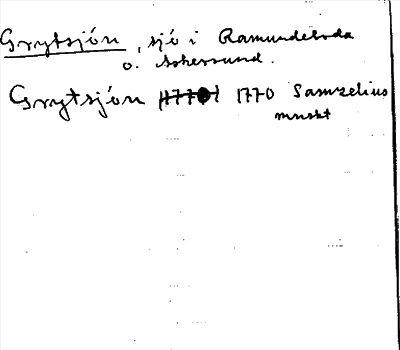 Grytsjön, sjö i Ramundeboda
o. Askersund.
Grytsjön 1770 Samzelius
mnskt